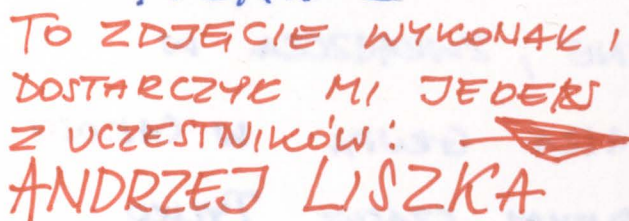 TO ZDJĘCIE WYKONAŁ I
DOSTARCZYŁ MI JEDEN
Z UCZESTNIKÓW:
ANDRZEJ LISZKA